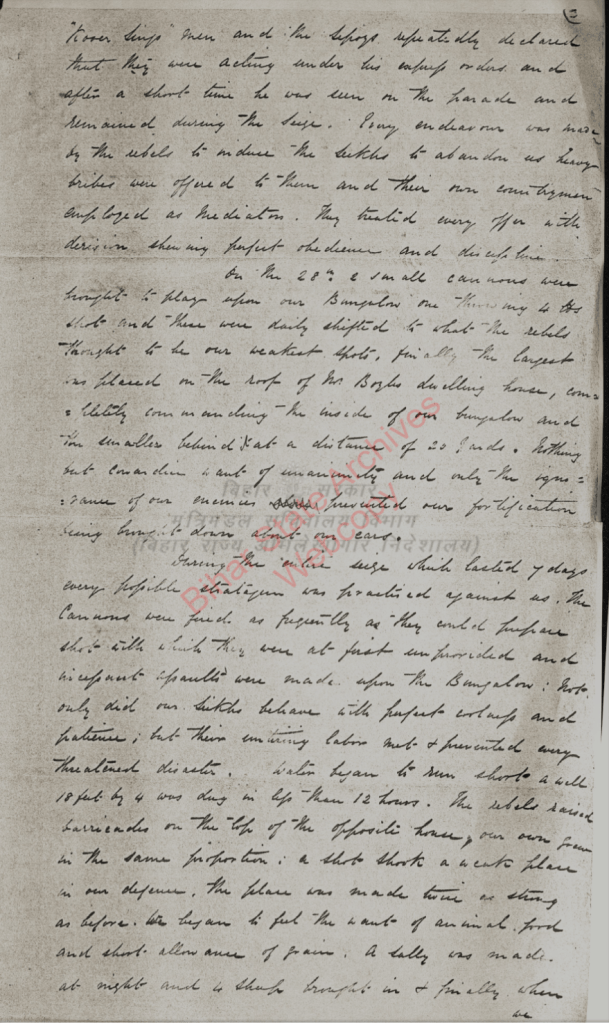 (3
"Kooer Sings" men and the Sepoys repeatedly declared
that they were acting under his express orders and
after a short time he was seen on the parade and
remained during the Seige. Every endeavour was made
by the rebels to induce the Seikhs to abandon us heavy
bribes were offered to them and their own countrymen
employed as Mediators. They treated every offer with
derision shewing perfect obedience and discipline.
On the 28th 2 small cannons were
brought to play upon our Bungalow one throwing 4 lbs
shot and these were daily shifted to what the rebels
thought to be our weakest spots, finally the largest
was placed on the roof of Mr Boyles dwelling house, com=
=pletely commanding the inside of our bungalow and
the smaller behind it at a distance of 20 yards. Nothing
but cowardice want of unanimity and only the igno=
=rance of our enemies prevented our fortification
being brought down about our ears.
During the entire seige which lasted 7 days
every possible stratagem was practised against us. The
Cannons were fired as frequently as they could prepare
shot with which they were at first unprovided and
incessant assaults were made upon the Bungalow: Not
only did our Seikhs behave with perfect coolness and
patience; but their untiring labor met & prevented every
threatened disaster. Water began to run short a well
18 feet by 4 was dug in less than 12 hours. The rebels raised
barricades on the top of the opposite house, our own grew
in the same proportion: a shot shook a weak place
in our defence, the place was made twice as strong
as before. We began to feel the want of animal food
and short allowance of grain. A sally was made
at night and 4 sheep brought in & finally when
we
बिहार सरकार
मंत्रिमंडल सचिवालय विभाग
(बिहार राज्य अभिलेखागार निदेशालय)
Bihar State Archives
Webcopy